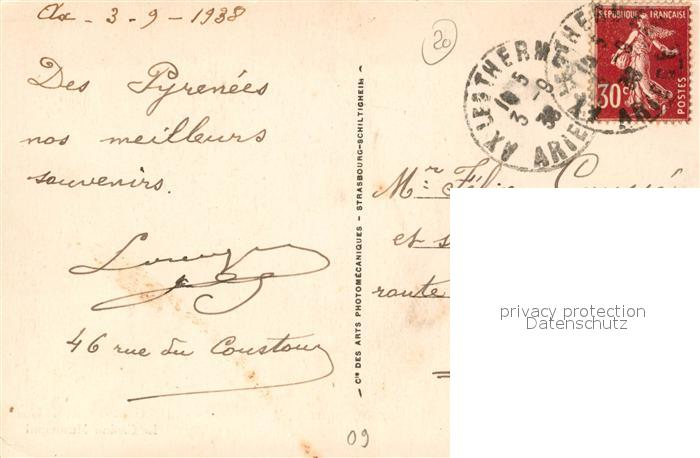 Ax - 3 - 9 - 1938
Des Pyrenées
nos meilleurs
souvenirs.
46 rue du
Cie DES ARTS PHOTOMÉCANIQUES - STRASBOURG-SCHILTIGHEIM
20
AX LES THERMES
ARIEGE
RÉPUBLIQUE FRANÇAISE
30c
POSTES
Mr Félix
et
route
privacy protection
Datenschutz
09